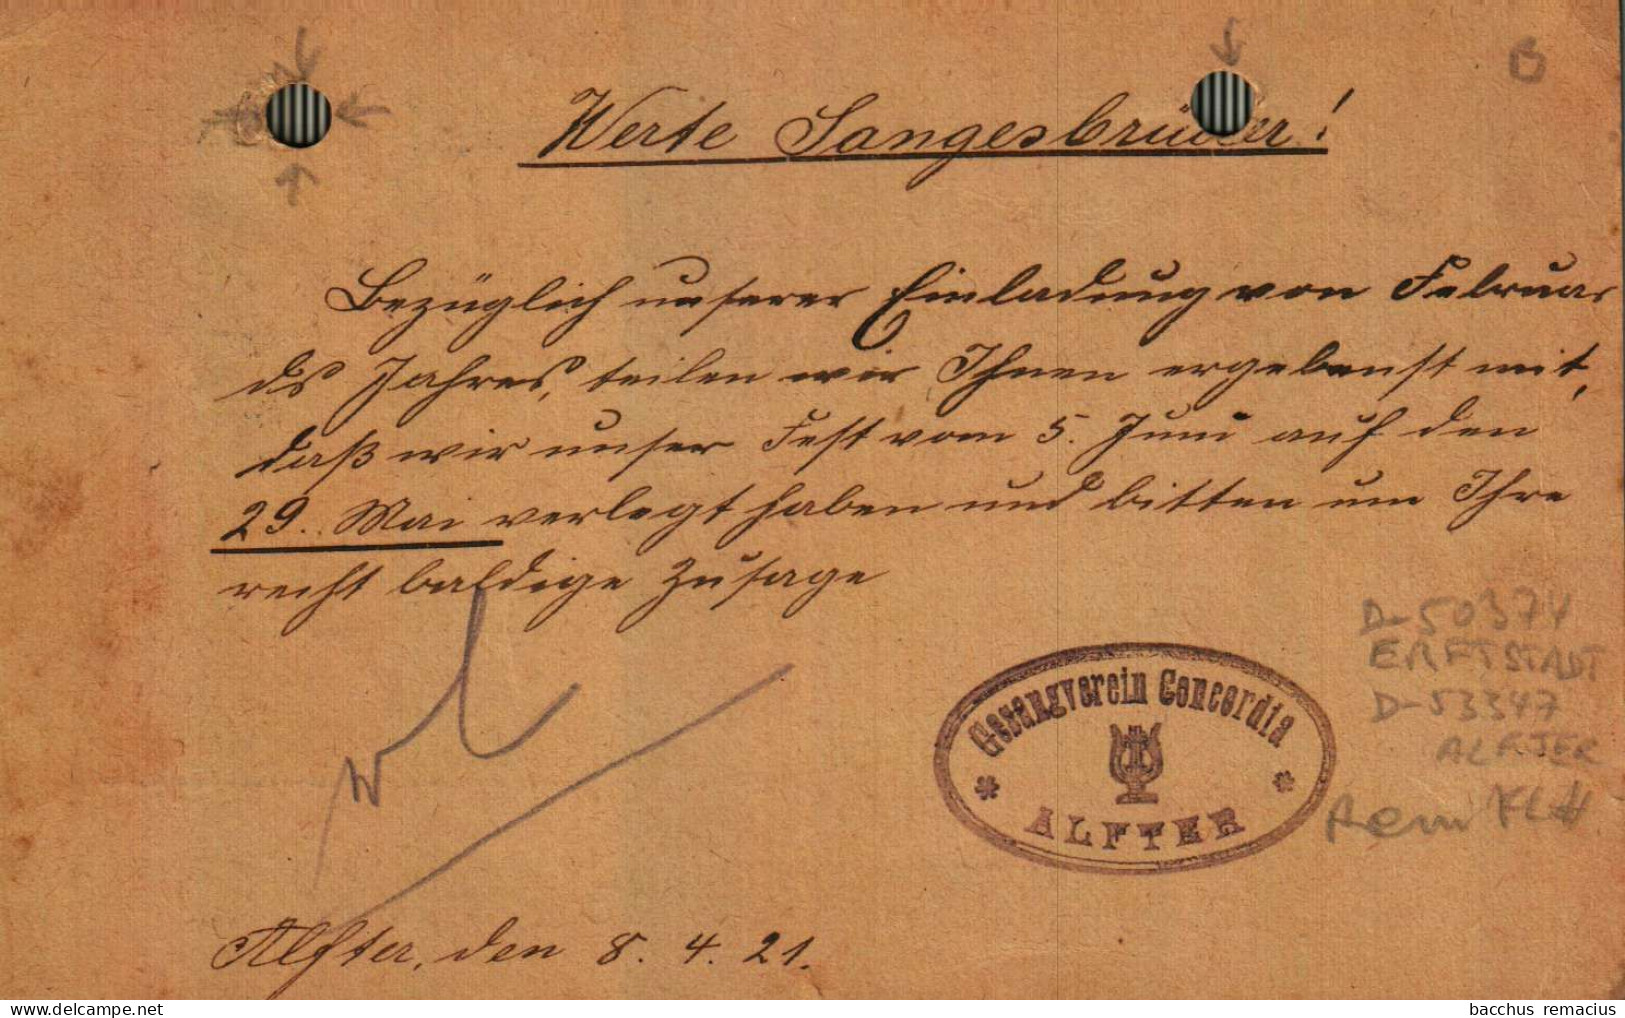 B
Werte Sangesbrüder!
Bezüglich unserer Einladung von Februar
ds Jahres, teilen wir Ihnen ergebenst mit,
daß wir unser Fest vom 5. Juni auf den
29. Mai verlegt haben und bitten um Ihre
recht baldige Zusage
D-50374
ERFTSTADT
D-53347
ALFTER
Gesangverein Concordia
ALFTER
Alfter, den 8. 4. 21.
bacchus remacius